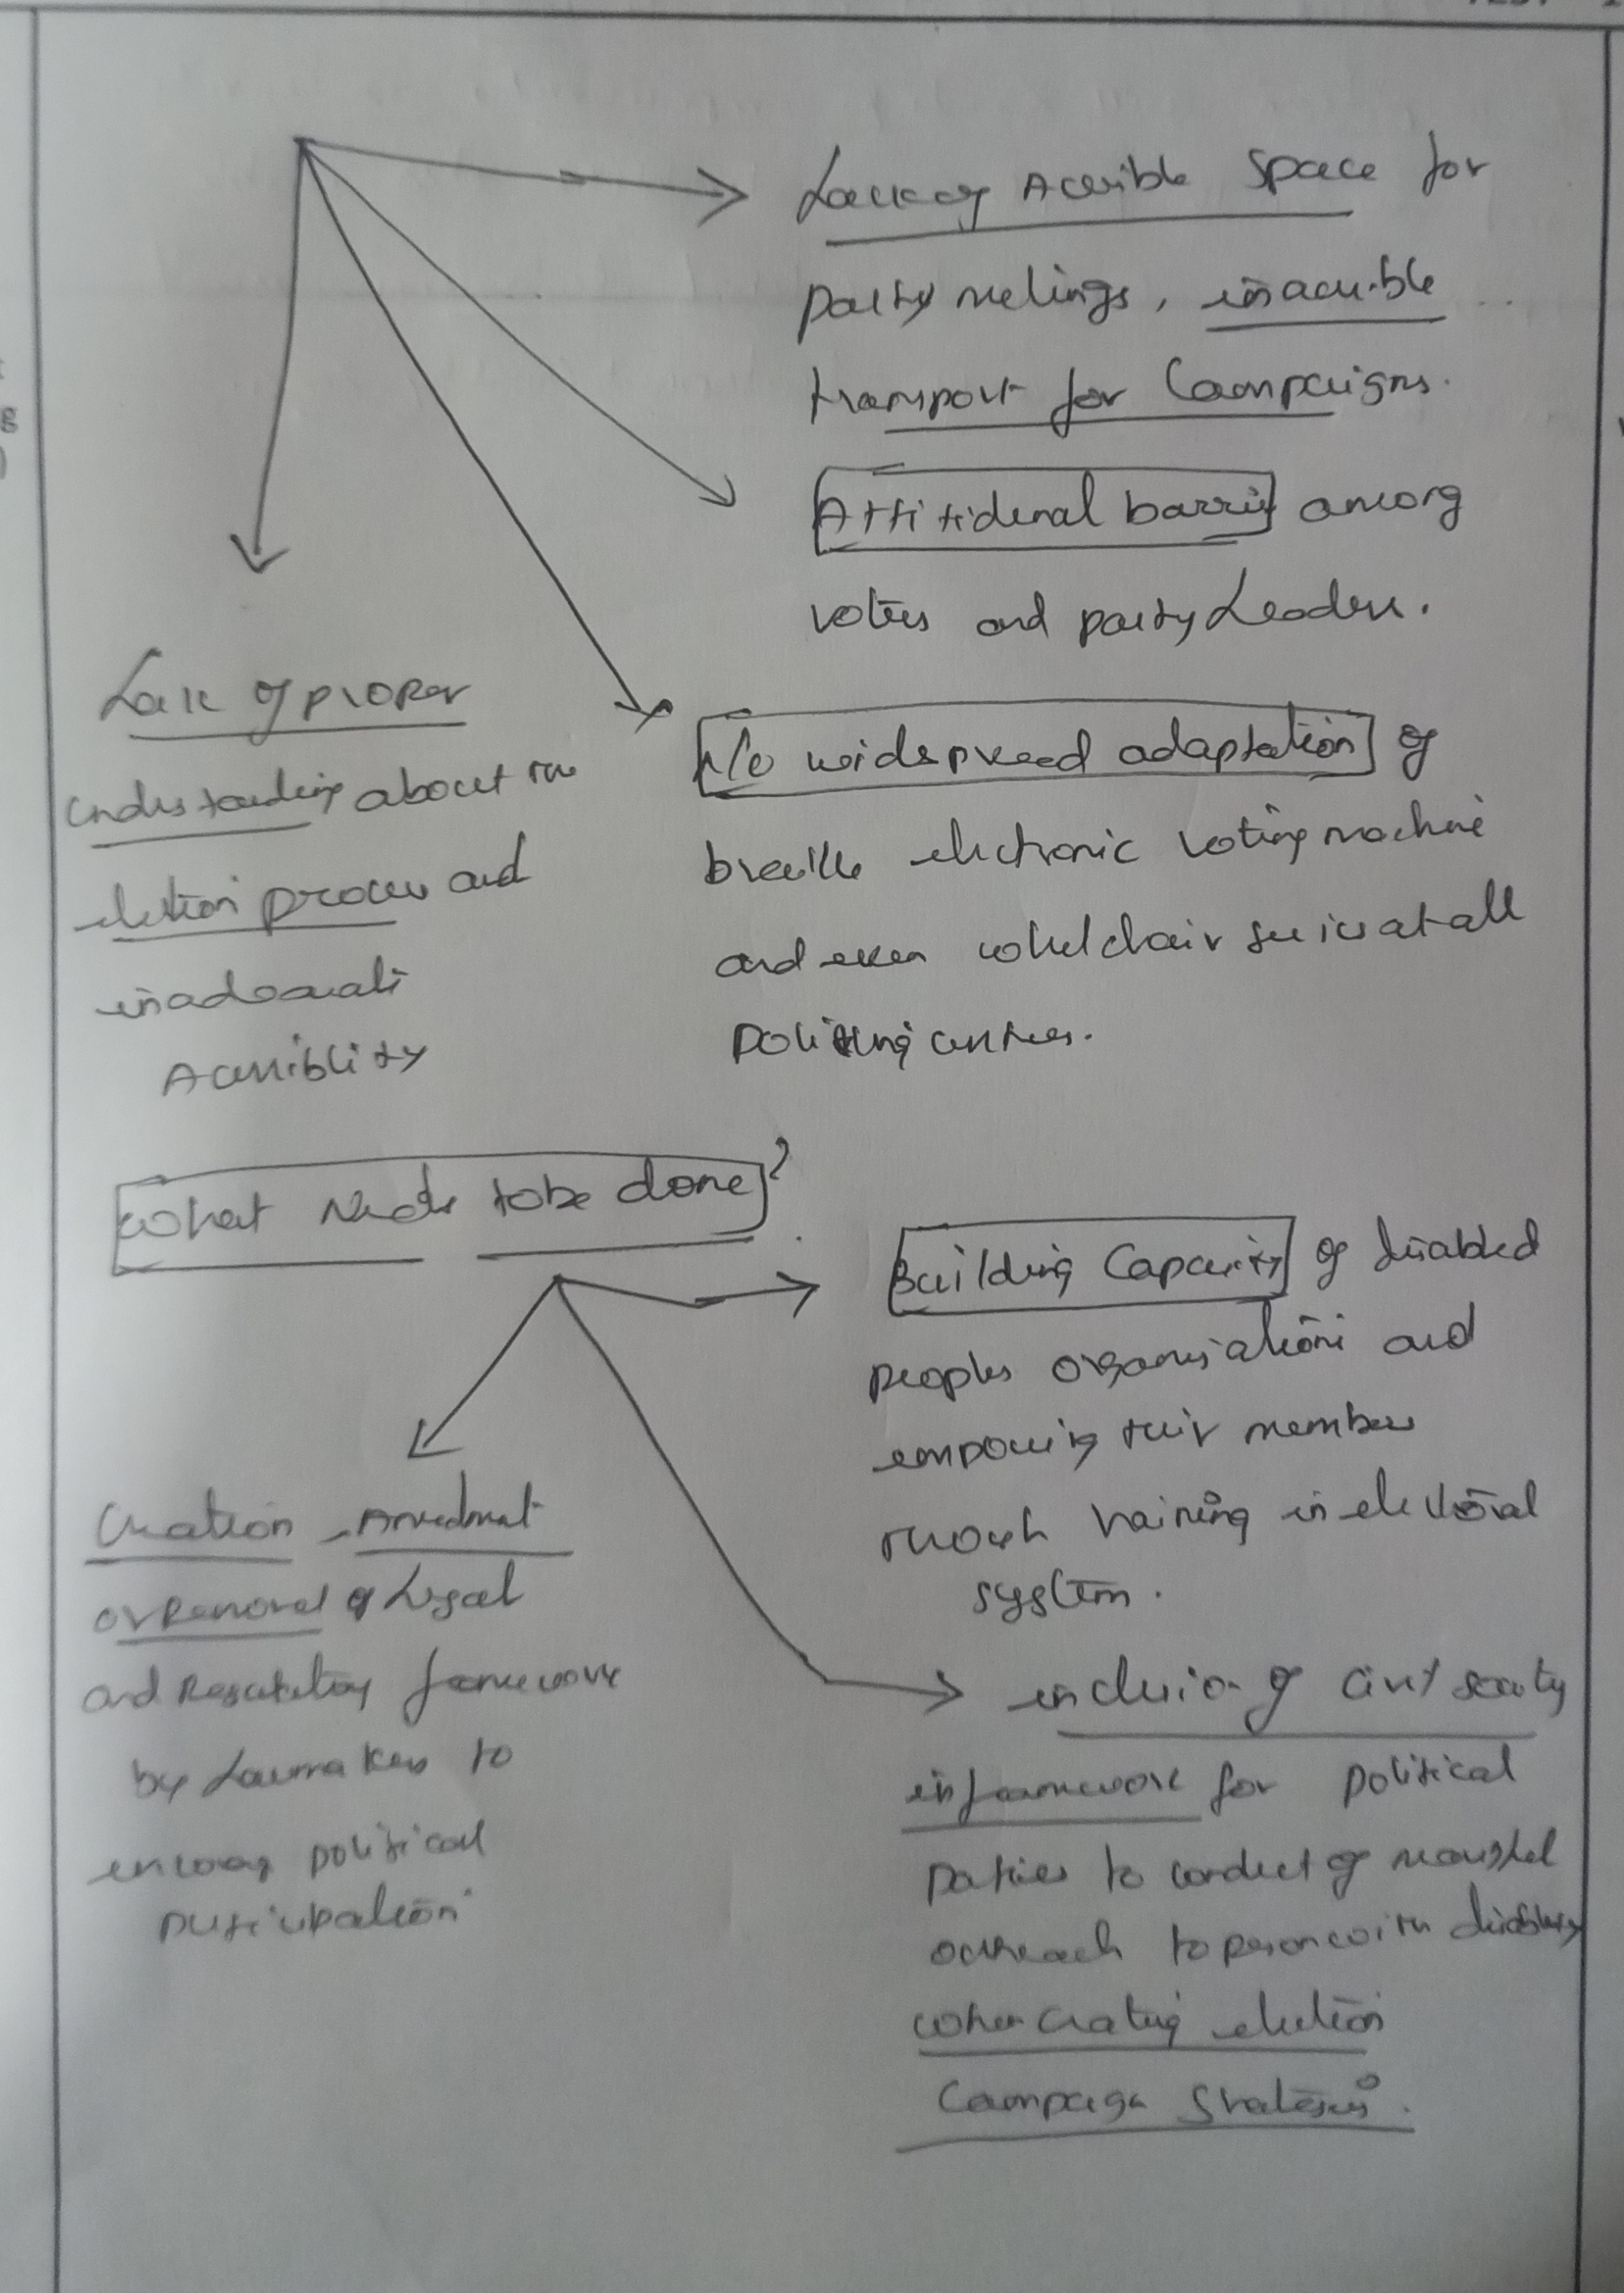 Lack of Accesible Space for
party meetings, inaccesible
transport for Campaigns.
Attitidenal barrier among
voters and party Leaders.
Lack of proper
understanding about the
election process and
inadequate
Accessiblity
No widespread adaptation of
braille electronic voting machine
and even wheelchair services at all
polling centres.
What Needs to be done?
Building Capacity of disabled
peoples organisations and
empowering their members
through training in electoral
system.
Creation, Amendment
or Removal of Legal
and Regulatory framework
by Lawmakers to
encourage political
participation
inclusion of civil society
in framework for political
parties to conduct of meaningful
outreach to person with disability
when creating election
Campaign Strategies.